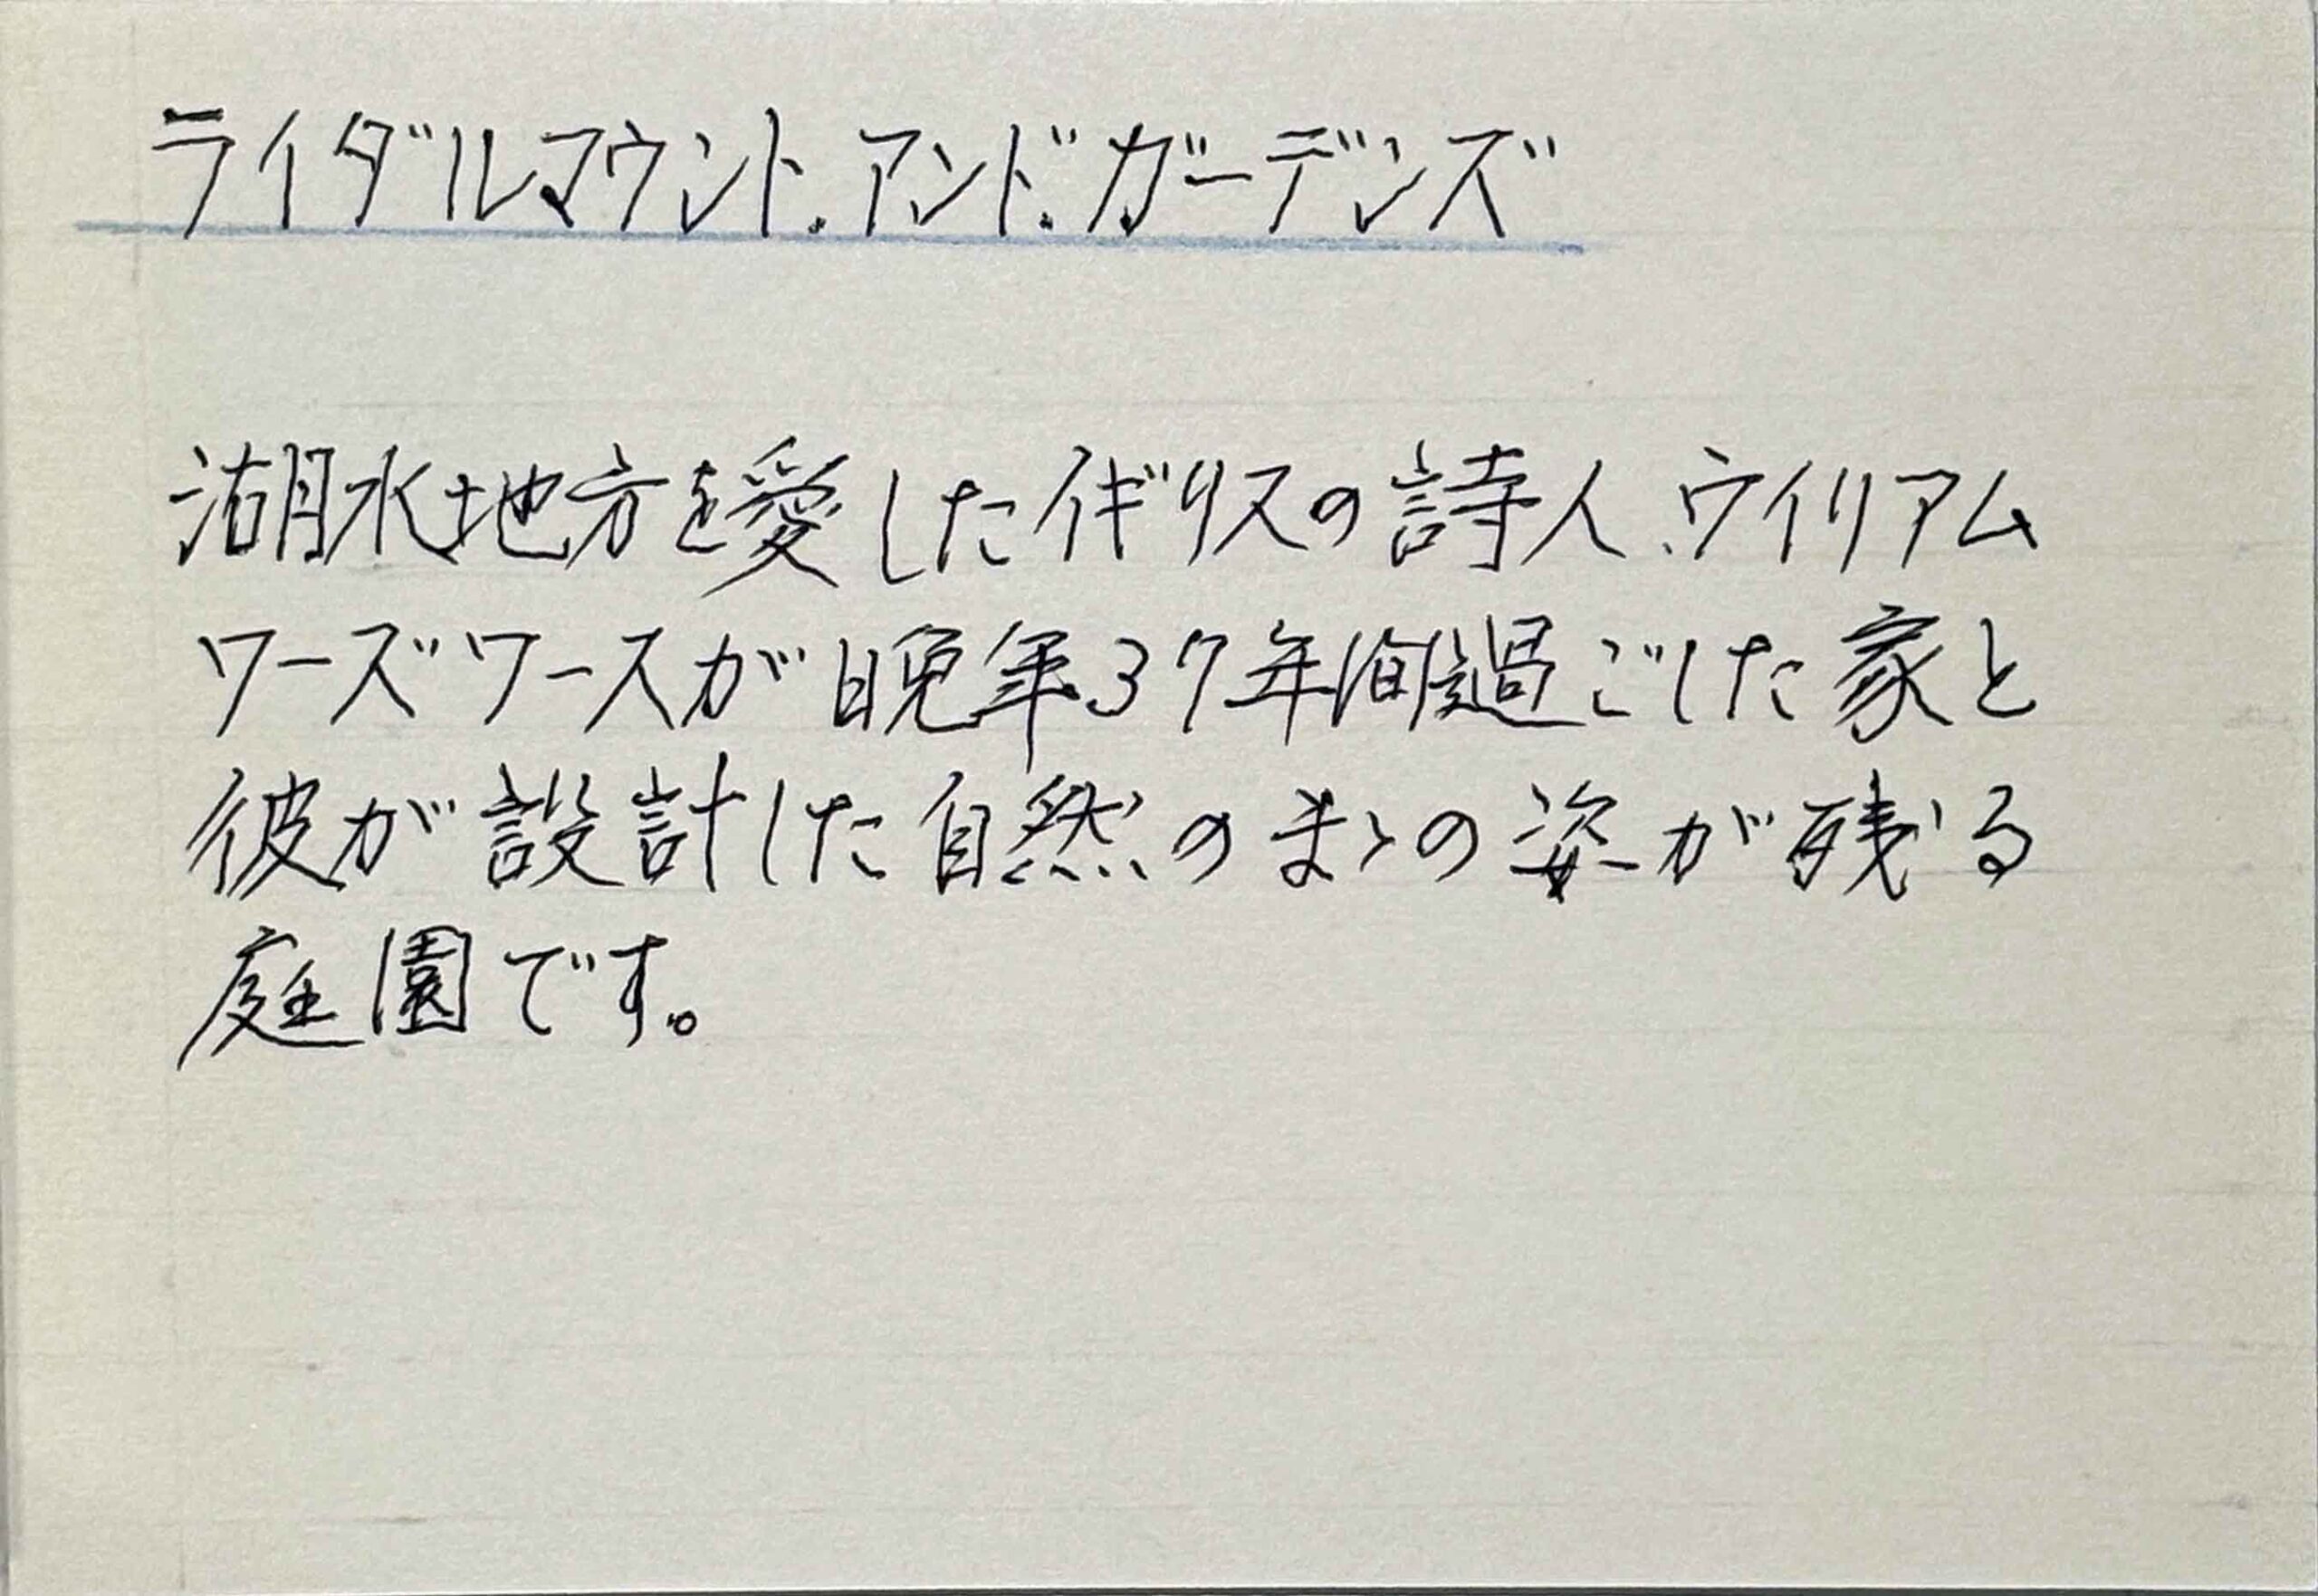 ライダルマウント.アンド.ガーデンズ
湖水地方を愛したイギリスの詩人、ウイリアム
ワーズワースが晩年37年間過ごした家と
彼が設計した自然のまゝの姿が残る
庭園です。